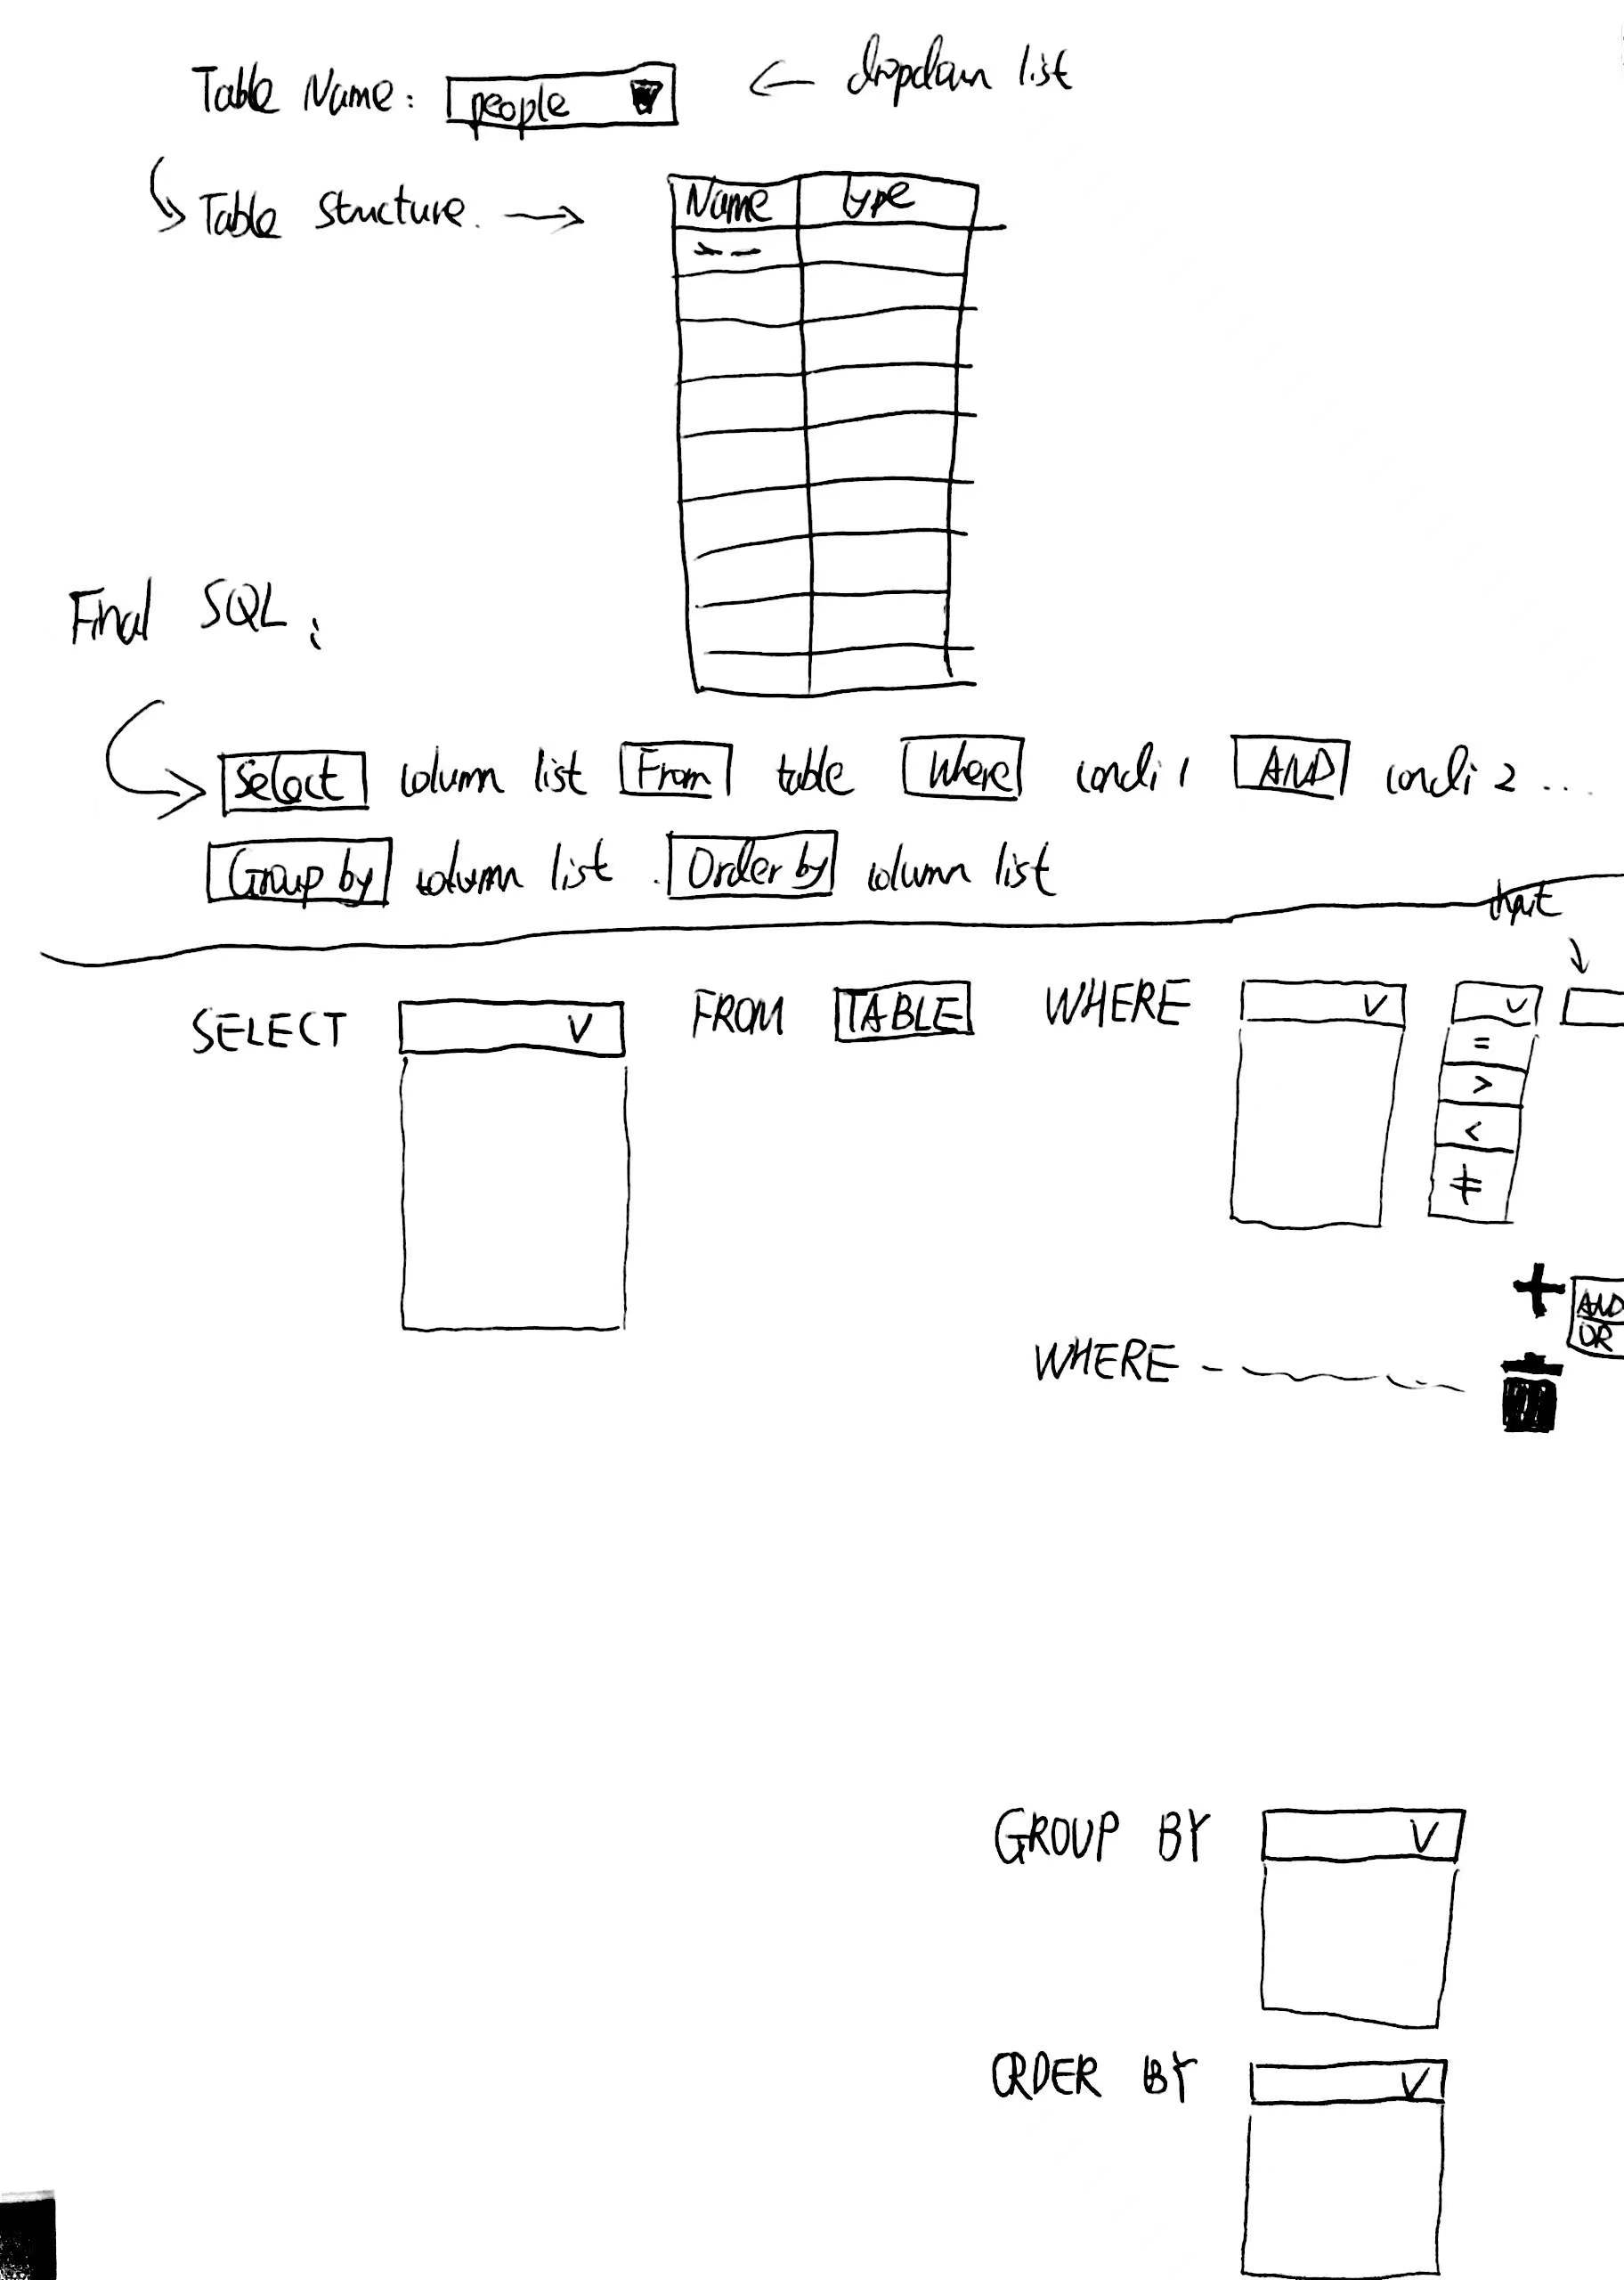 Table Name: people ← dropdown list
Table Structure. →
Name Type
Final SQL:
Select column list From table Where condi 1 AND condi 2 ...
Group by column list . Order by column list
input
SELECT V FROM TABLE WHERE V V
=
>
<
≠
+ AND
OR
WHERE
GROUP BY V
ORDER BY V